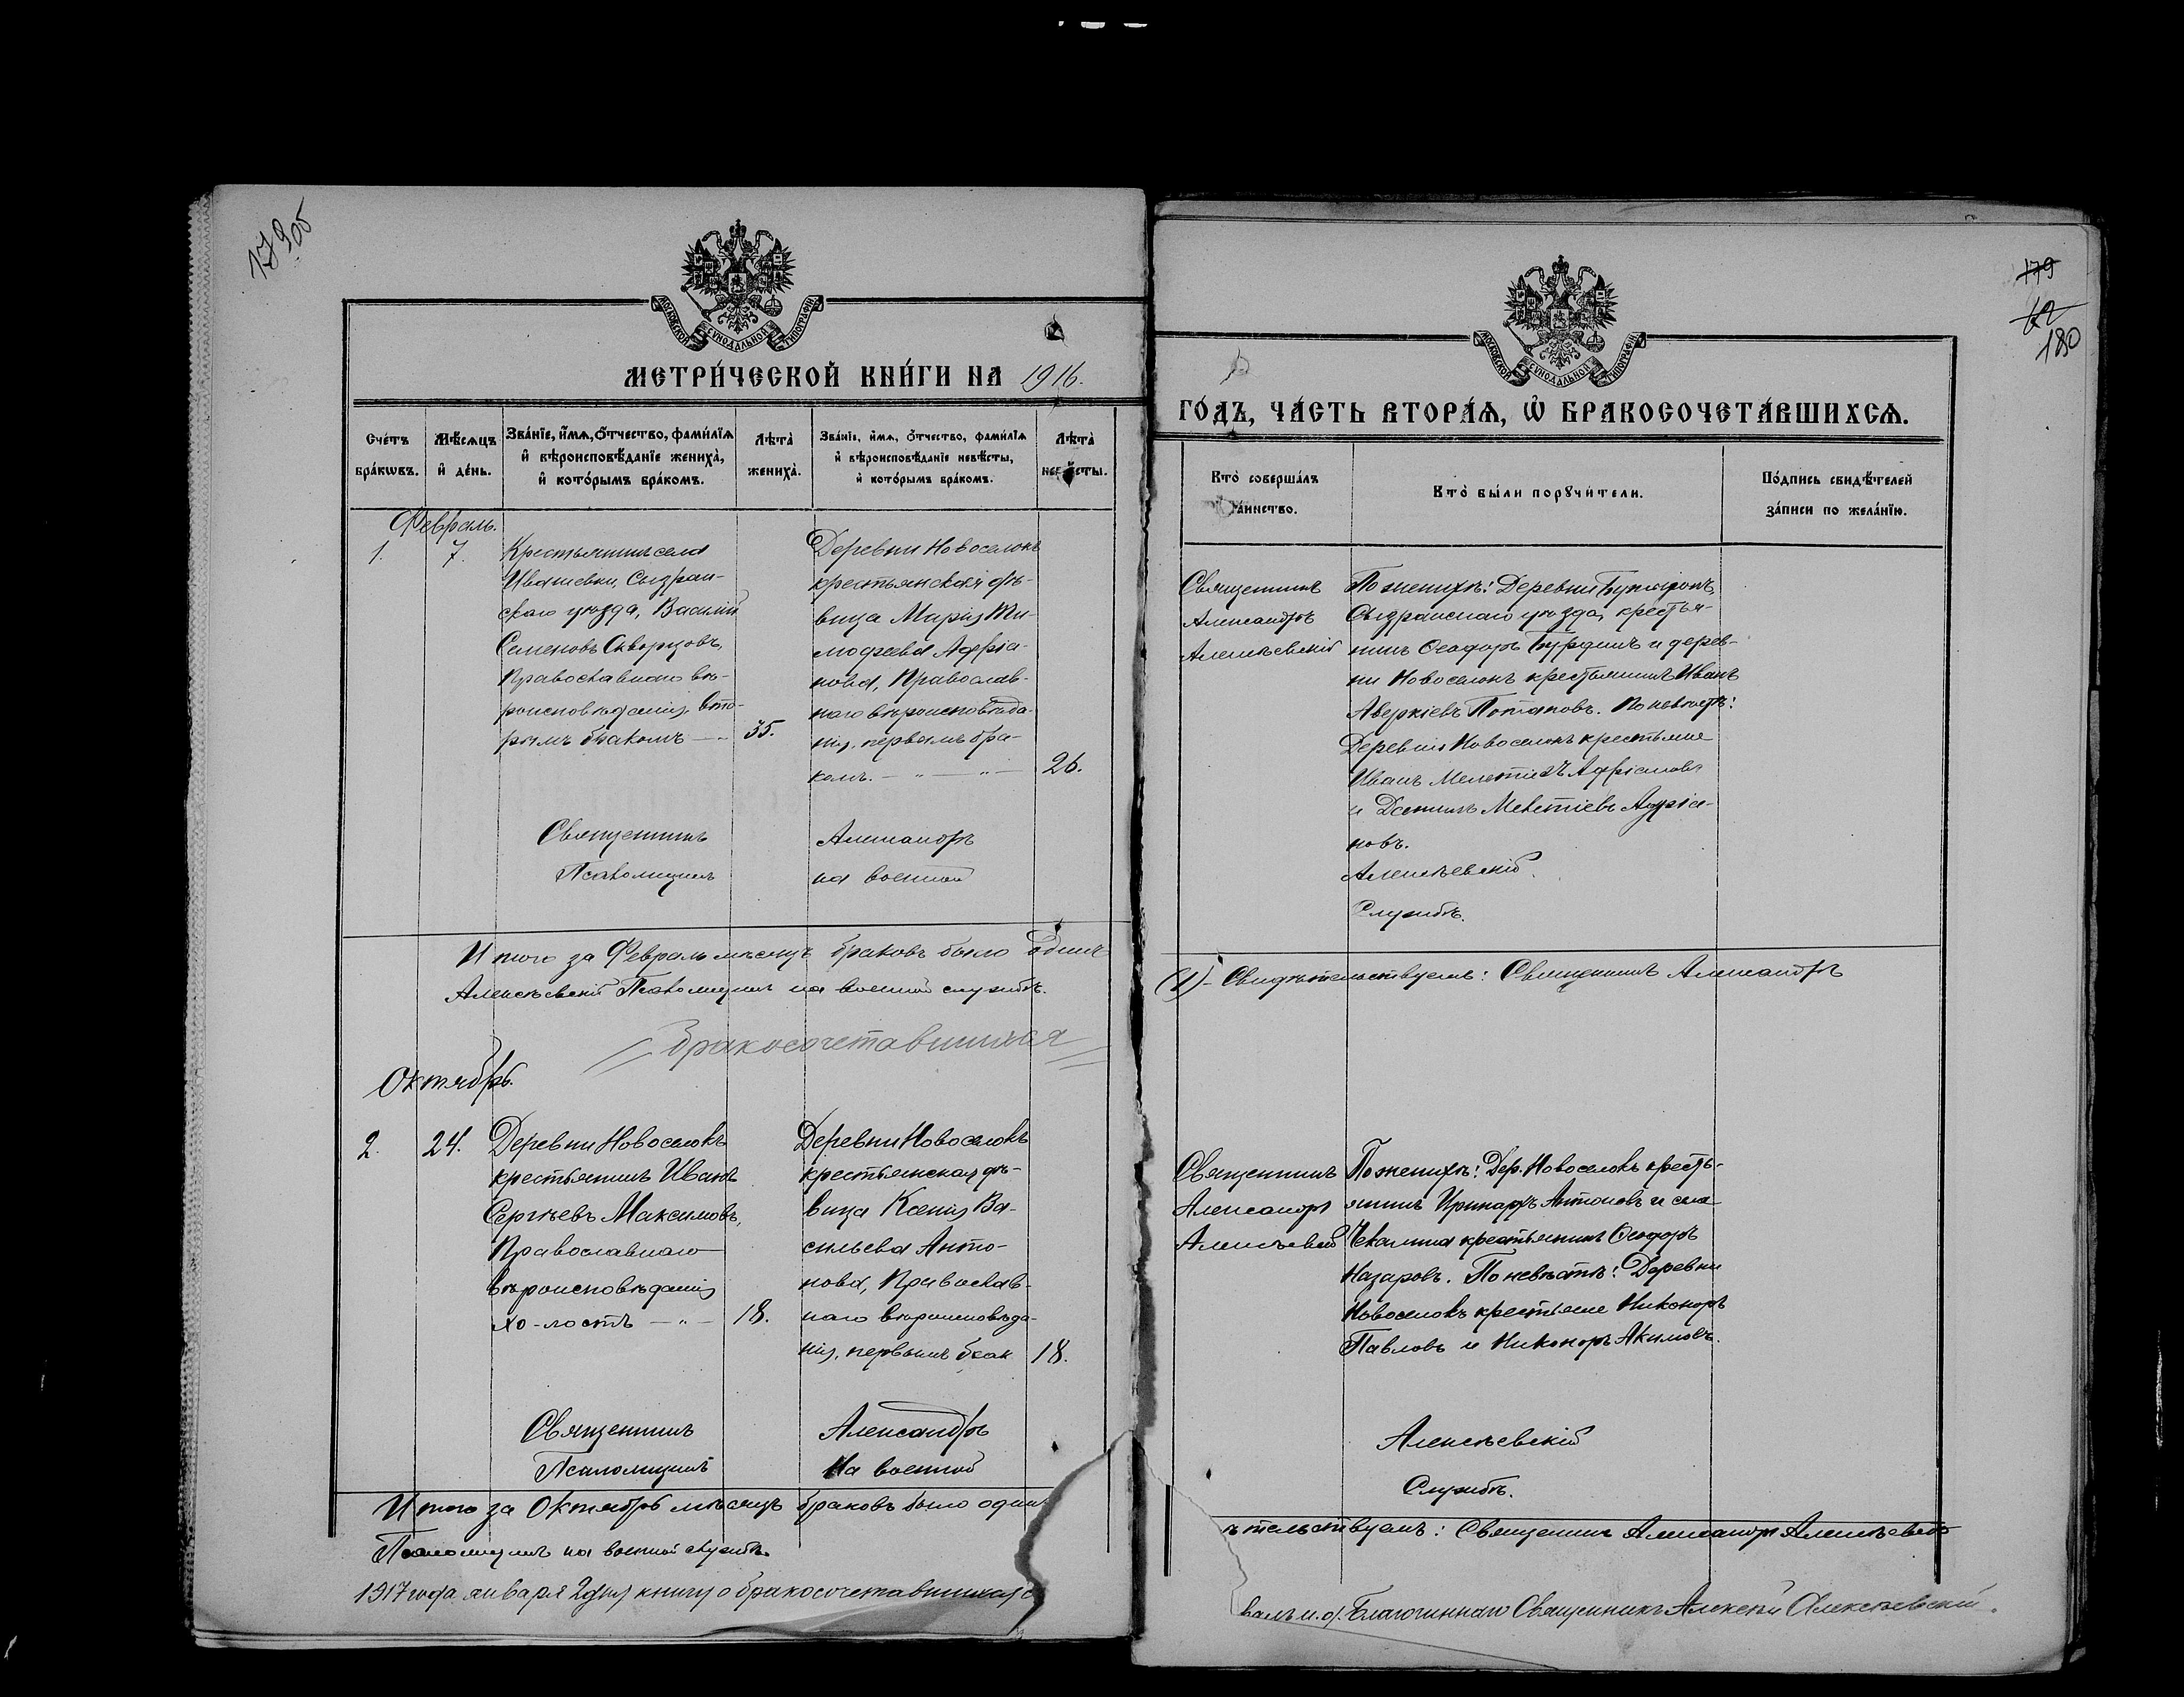 179об
МОСКОВСКОЙ СѴНОДАЛЬНОЙ ТИПОГРАФІИ
МЕТРИ́ЧЕСКОЙ КНИ́ГИ НА 1916.
Сче́тъ бра́кѡвъ.
Мѣ́сѧцъ и҆ де́нь.
Зва́нїе, и҆́мѧ, ѻ҆́тчество, фами́лїѧ и҆ вѣроисповѣ́данїе жениха̀, и҆ кото́рымъ бра́комъ.
Лѣта̀ жениха̀.
Зва́нїе, и҆́мѧ, ѻ҆́тчество, фами́лїѧ и҆ вѣроисповѣ́данїе невѣ́сты, и҆ кото́рымъ бра́комъ.
Лѣта̀ невѣ́сты.
Февраль.
1.
7.
Крестьянинъ села
Ивашевки, Сызран-
скаго уѣзда, Василій
Семеновъ Скворцовъ,
Православнаго вѣ-
роисповѣданія, вто-
рымъ бракомъ
35.
Деревни Новоселокъ
крестьянская дѣ-
вица Марія Ти-
мофеева Адріа-
нова, Православ-
наго вѣроисповѣда-
нія, первымъ бра-
комъ.
26.
Священникъ Александръ
Псаломщикъ на военной
Итого за Февраль мѣсяцъ браковъ было одинъ
Алексѣевскій Псаломщикъ на военной службѣ.
Бракосочетавшихся
Октябрь.
2.
24.
Деревни Новоселокъ
крестьянинъ Иванъ
Сергѣевъ Максимовъ,
Православнаго
вѣроисповѣданія
хо-лостъ
18.
Деревни Новоселокъ
крестьянская дѣ-
вица Ксенія Ва-
сильева Анто-
нова, Православ-
наго вѣроисповѣда-
нія, первымъ брак
18.
Священникъ Александръ
Псаломщикъ На военной
Итого за Октябрь мѣсяцъ браковъ было один
Псаломщикъ на военной службѣ.
1917 года января 2 дня книгу о бракосочетавшихся с
179
180
МОСКОВСКОЙ СѴНОДАЛЬНОЙ ТИПОГРАФІИ
ГО́ДЪ, ЧА́СТЬ ВТОРА́Ѧ, Ѡ҆ БРАКОСОЧЕТА́ВШИХСѦ.
Кто̀ соверша́лъ та́инство.
Кто̀ бы́ли порꙋчи́тели.
По́дпись свидѣ́телей за́писи по жела́нїю.
Священникъ
Александръ
Алексѣевскій
По женихѣ: Деревни
Сызранскаго уѣзда, крестья-
нинъ Ѳеодоръ Бурдинъ и дерев-
ни Новоселокъ крестьянинъ Иванъ
Аверкіевъ Потаповъ. По невѣстѣ:
Деревни Новоселокъ крестьяне
Иванъ Мелетіевъ Адріановъ
и Даніилъ Мелетіевъ Адріа-
новъ.
Алексѣевскій
Службѣ.
(1) - Свидѣтельствуемъ: Священникъ Александръ
Священникъ
Александръ
Алексѣевскій
По женихѣ: Дер. Новоселокъ кресть-
янинъ Иринархъ Антоновъ и села
Чекалина крестьянинъ Ѳеодоръ
Назаровъ. По невѣстѣ: Деревни
Новоселокъ крестьяне Никоноръ
Павловъ и Никоноръ Акимовъ.
Алексѣевскій
Службѣ.
ѣтельствуемъ: Священникъ Александръ Алексѣевскій
валъ и. о. Благочиннаго Священникъ Алексѣй Алексѣевскій.